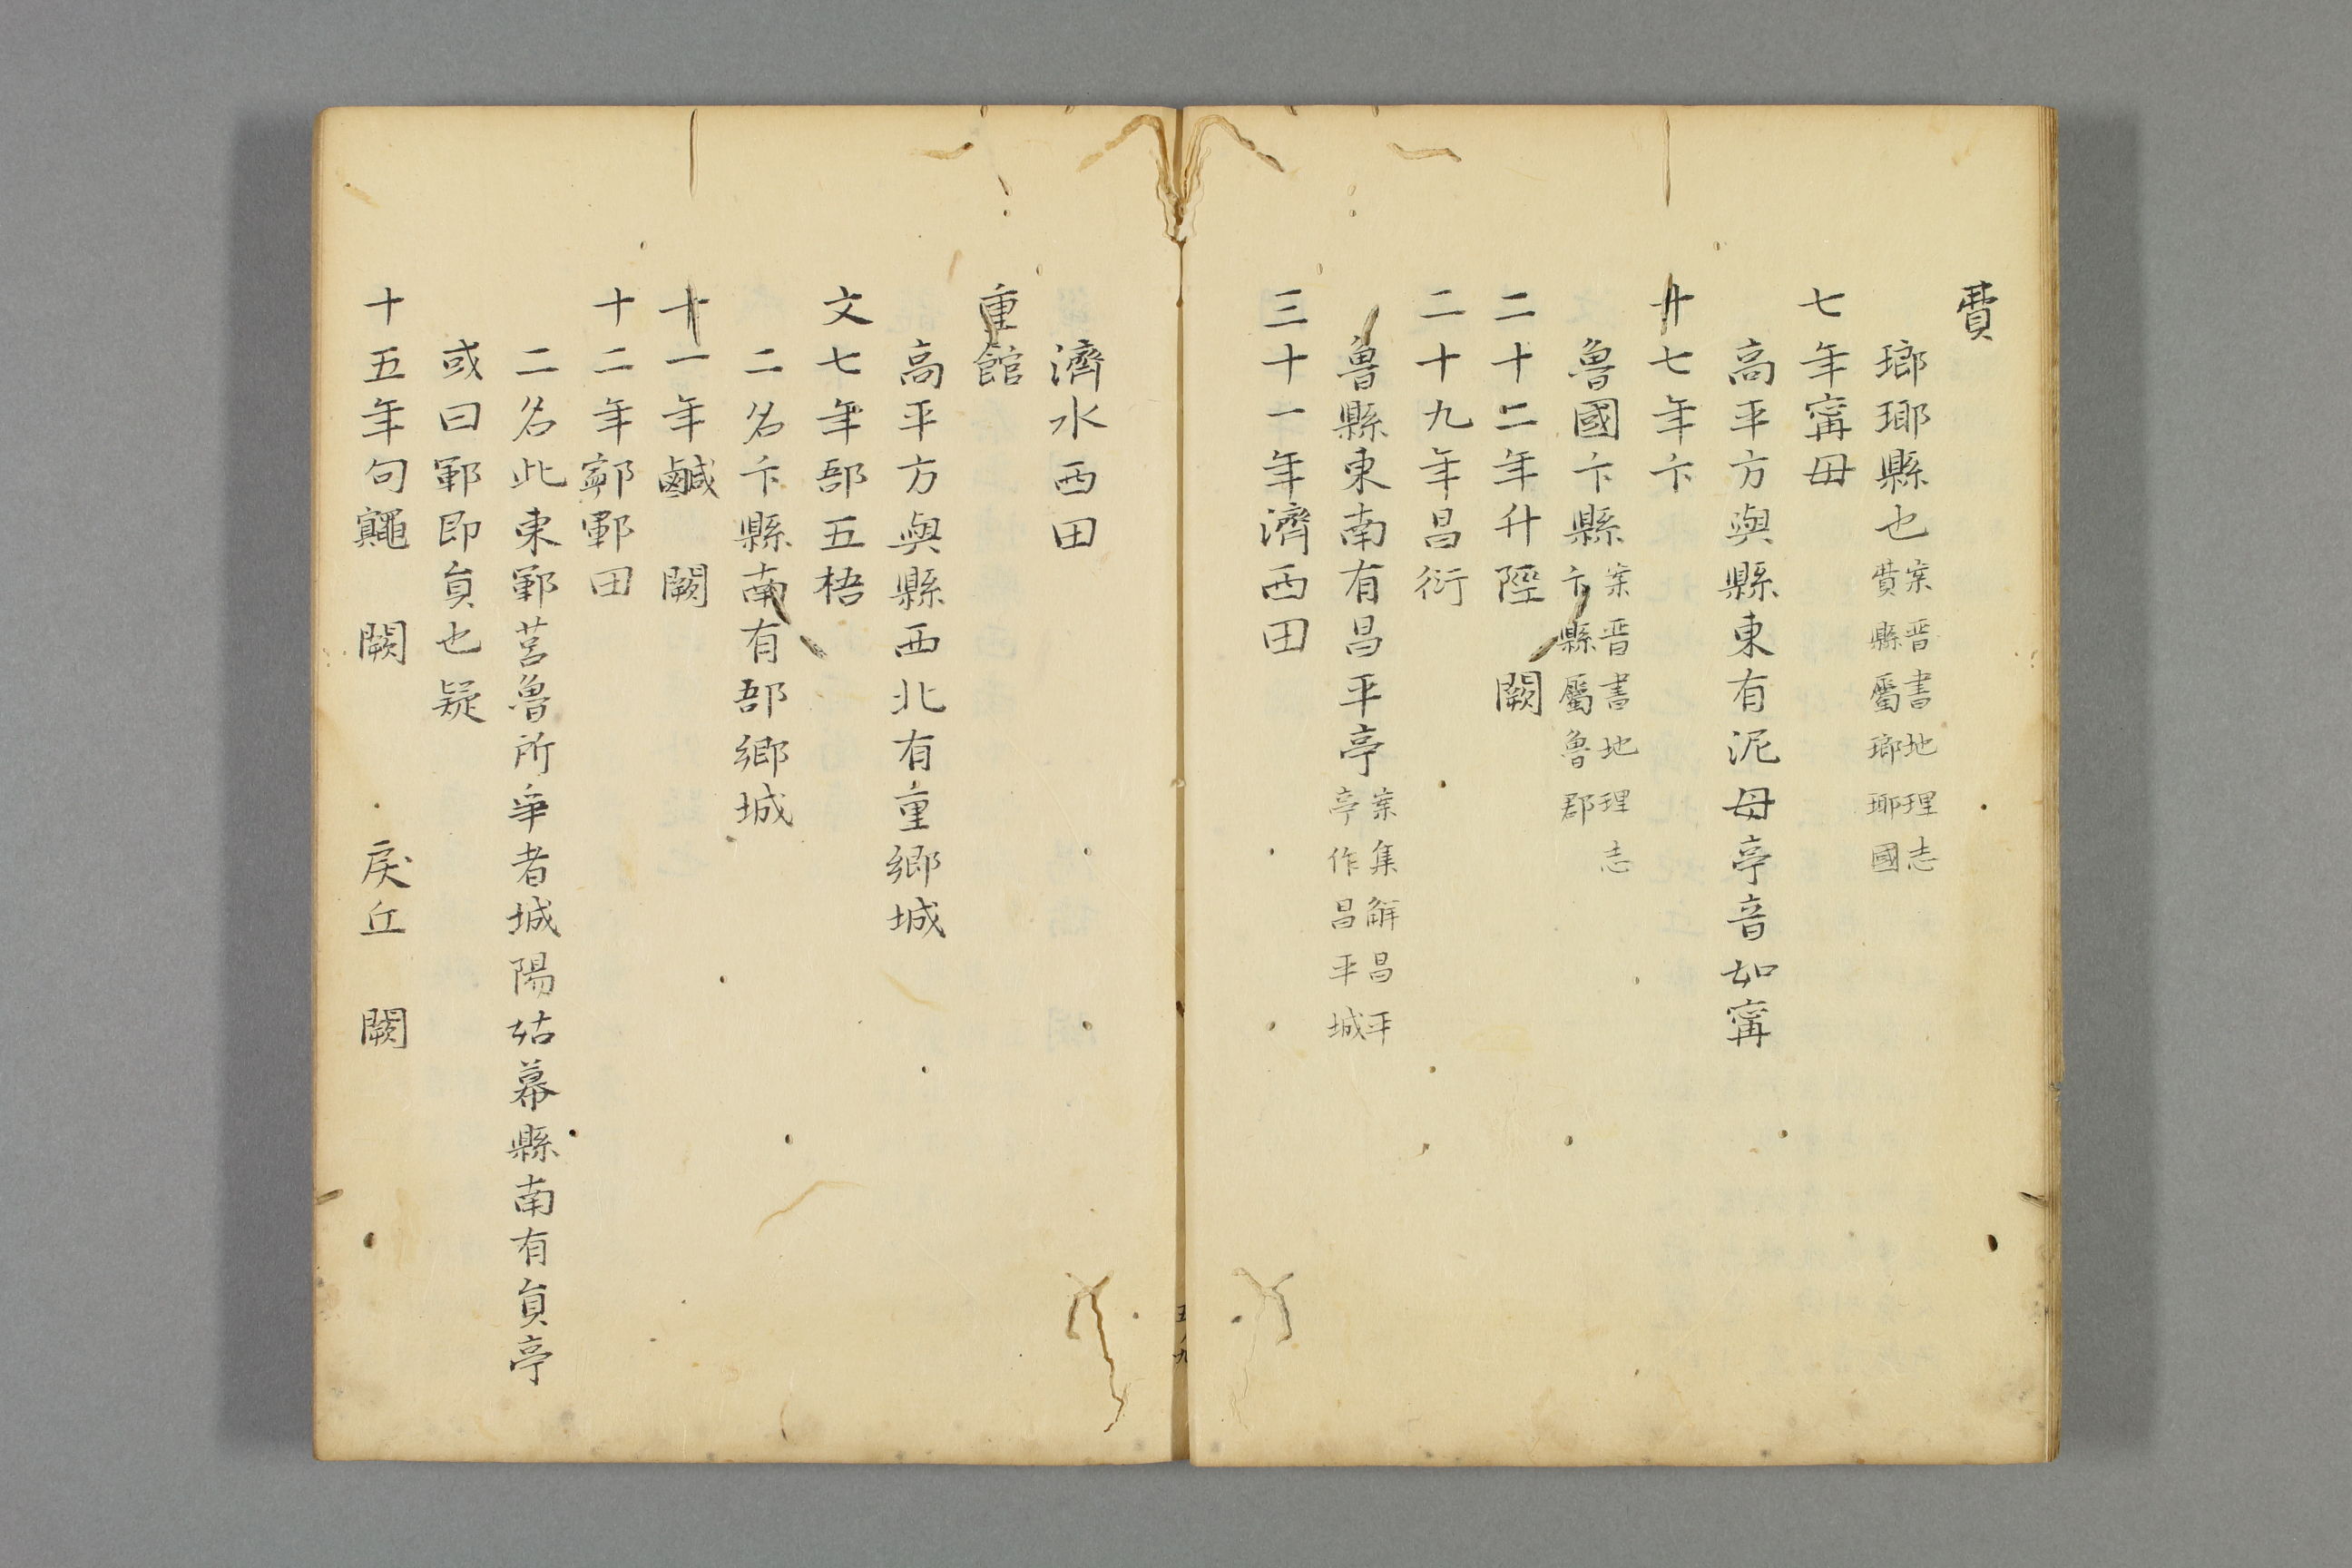 費
瑯琊縣也案晋書地理志費縣屬瑯琊國
七年甯毋
高平方與縣東有泥毋亭音如甯
十七年卞
魯國卞縣案晋書地理志卞縣屬魯郡
二十二年升陘 闕
二十九年昌衍
魯縣東南有昌平亭案集解昌平亭作昌平城
三十一年濟西田
濟水西田
重館
高平方與縣西北有重鄉城
文七年郚五梧
二名卞縣南有郚鄉城
十一年鹹 闕
十二年鄆田
二名此東鄆莒魯所爭者城陽姑幕縣南有員亭
或曰鄆即員也疑
十五年句鼆 闕 戾丘 闕